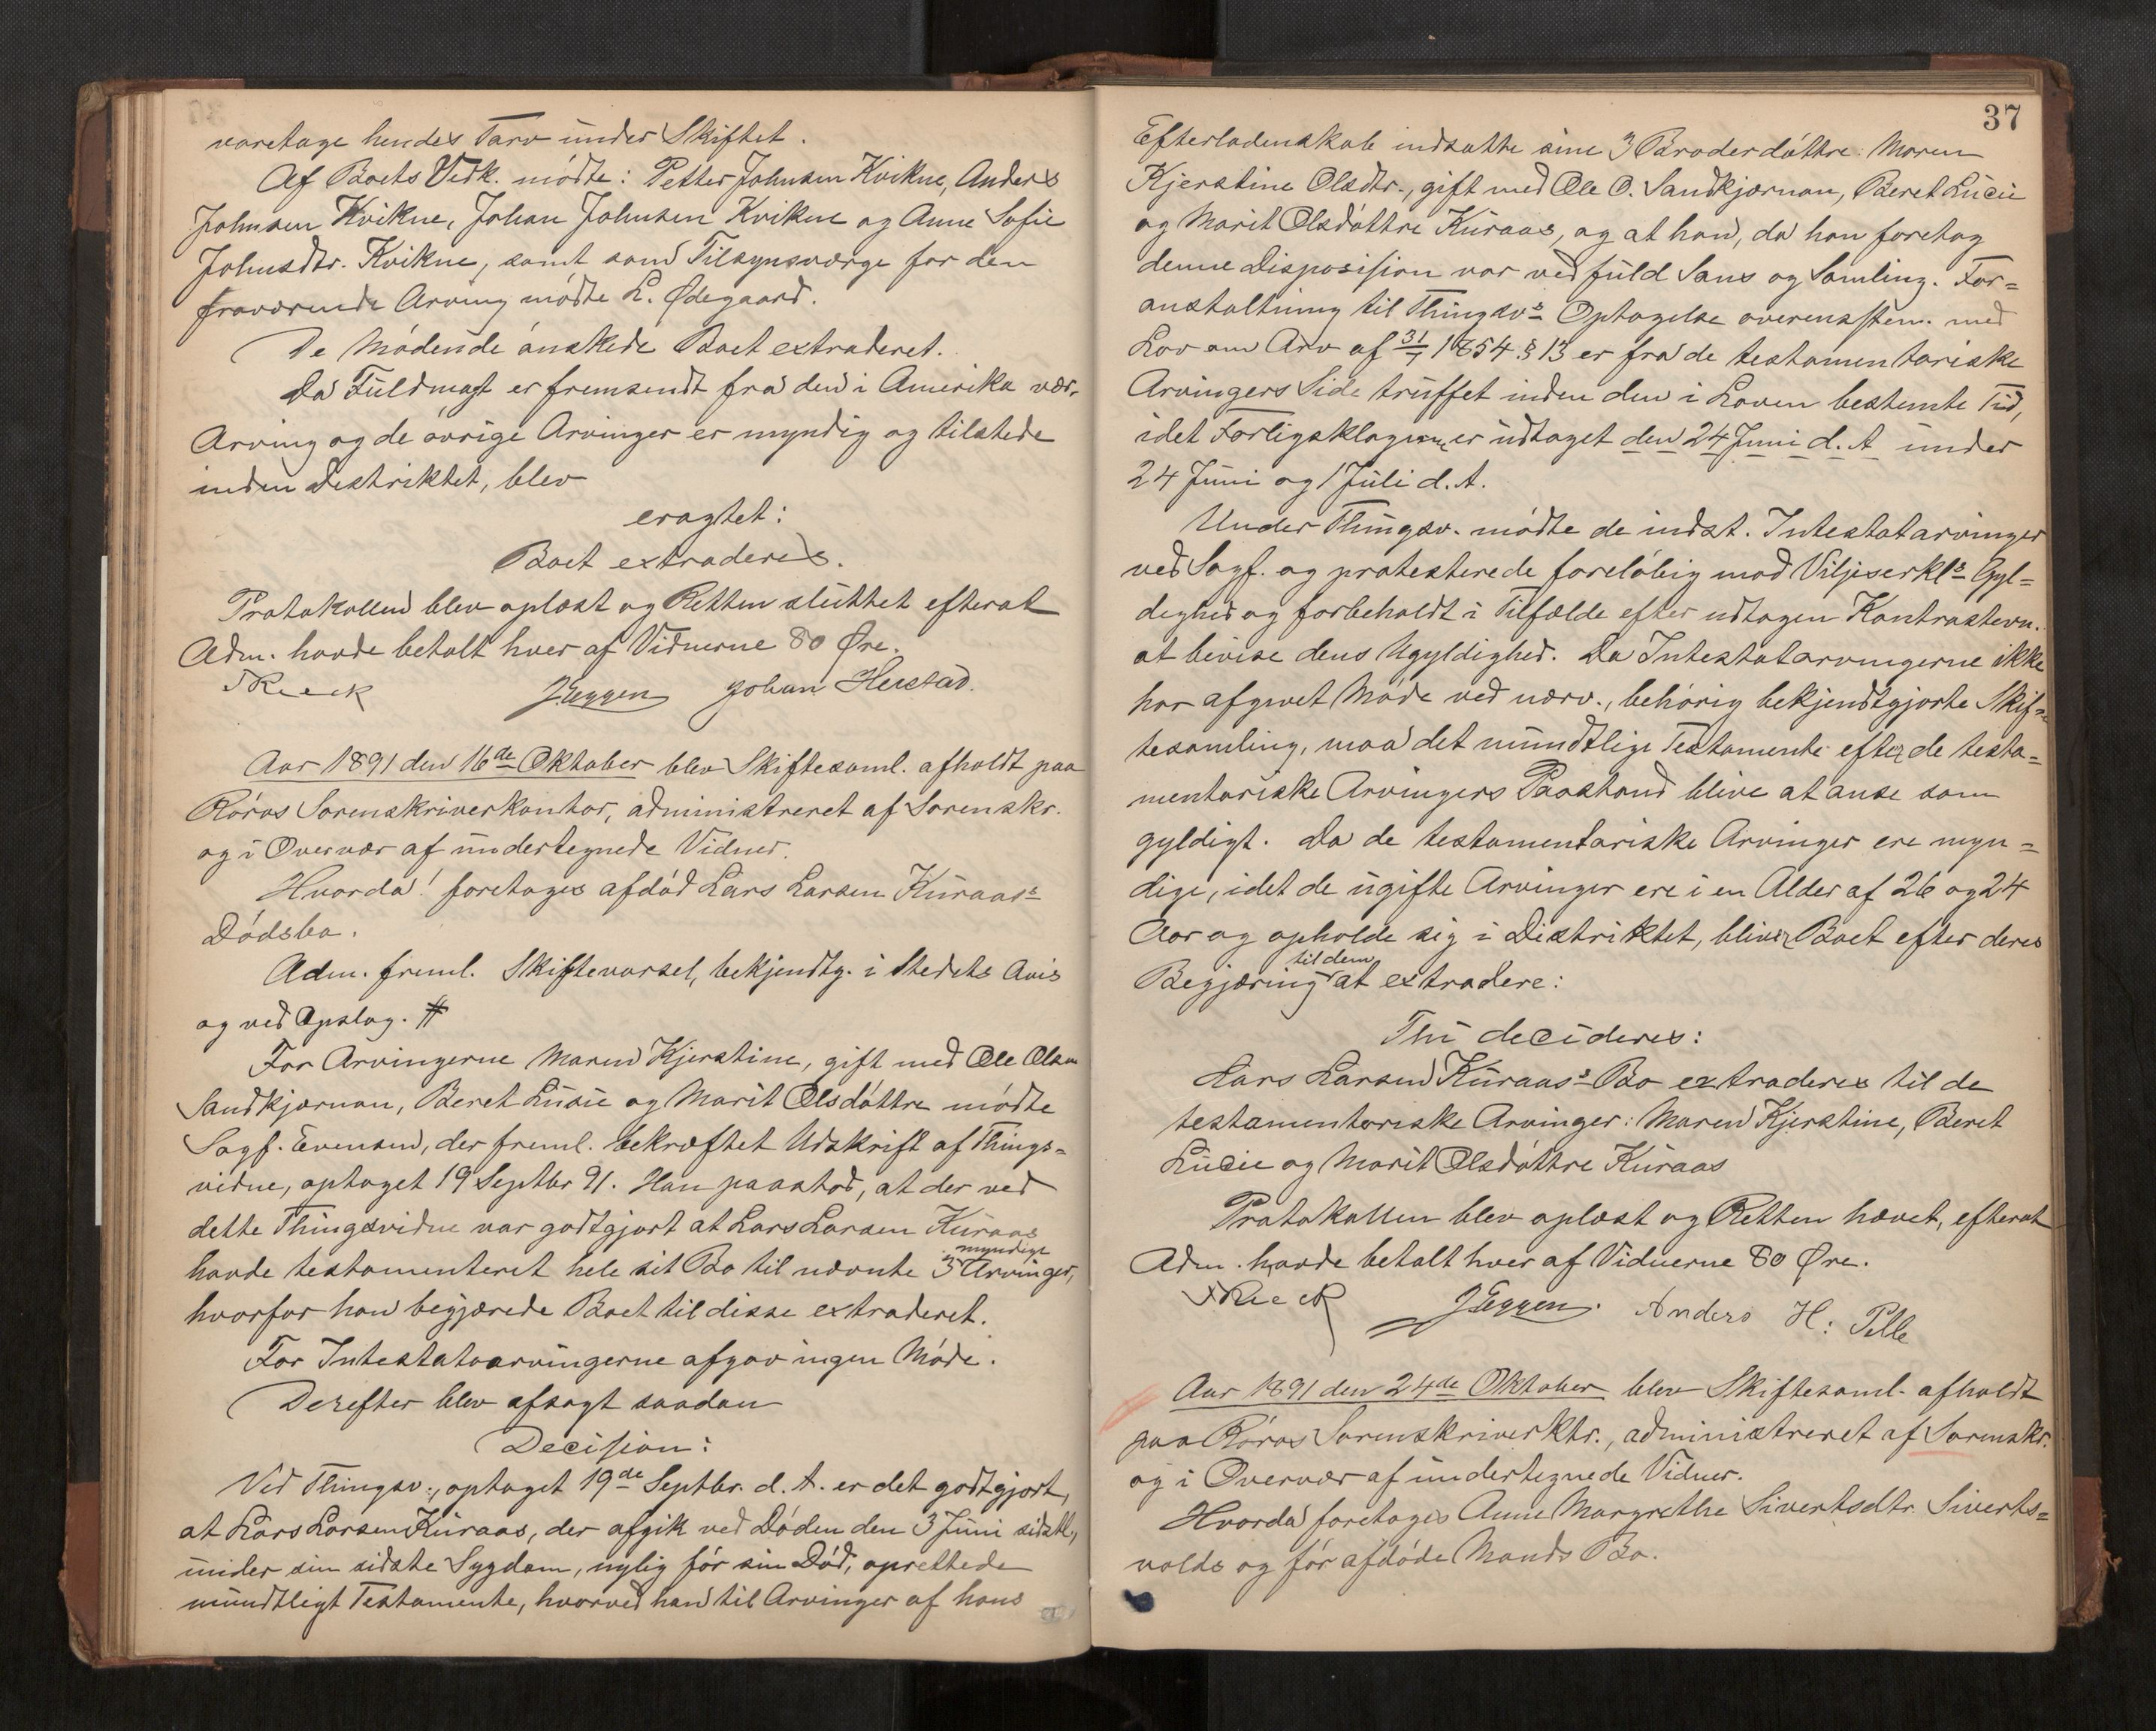 varetage hendes Tarv under Skiftet.
Af Boets Vedk. mödte: Petter Johnsen Kvikne, Anders
Johnsen Kvikne, Johan Johnsen Kvikne og Anne Sofie
Johnsdtr. Kvikne, samt som Tilsynsværge for den
fraværende Arving mödte L. Ødegaard.
De Mödende önskede Boet extraderet.
Da Fuldmagt er fremsendt fra den i Amerika vær.
Arving og de övrige Arvinger er myndig og tilstede
inden Distriktet, blev
eragtet:
Boet extraderes.
Protokollen blev oplæst og Retten sluttet efterat
Adm. havde betalt hver af Vidnerne 80 Øre.
JEggen Johan Herstad.
Aar 1891 den 16de Oktober blev Skiftesaml. afholdt paa
Röros Sorenskriverkontor, administreret af Sorenskr.
og i Overvær af undertegnede Vidner.
Hvorda! foretages afdöd Lars Larsen Kuraas's
Dödsbo.
Adm. freml. Skiftevarsel, bekjendtg. i Stedets Avis
og ved Opslag. #
For Arvingerne Maren Kjerstine, gift med Ole Olsen
Sandkjærnan, Beret Lusie og Marit Olsdöttre mödte
Sagf. Evensen, der freml. bekræftet Udskrift af Things=
vidne, optaget 19 Septbr 91. Han paastod, at der ved
dette Thingsvidne var godtgjort at Lars Larsen Kuraas
myndige
havde testamenteret hele sit Bo til nævnte 3 Arvinger,
hvorfor han begjærede Boet til disse extraderet.
For Intestatarvingerne afgav ingen Möde.
Derefter blev afsagt saadan
Decision:
Ved Thingsv., optaget 19de Septbr. d. A. er det godtgjort,
at Lars Larsen Kuraas, der afgik ved Döden den 3 Juni sidstl.,
under sin sidste Sygdom, nylig för sin Död, oprettede
mundtligt Testamente, hvorved han til Arvinger af hans
37
Efterladenskab indsatte sine 3 Broderdöttre: Maren
Kjerstine Olsdtr., gift med Ole O. Sandkjærnan, Beret Lucie
og Marit Olsdöttre Kuraas, og at han, da han foretog
denne Disposision var ved fuld Sans og Samling. For=
anstaltning til Thingsv's Optagelse overensstem. med
Lov om Arv af 31/7 1854 § 13 er fra de testamentariske
Arvingers Side truffet inden den i Loven bestemte Tid,
idet Forligsklagen er udtaget den 24 Juni d. A under
24 Juni og 1 Juli d. A.
Under Thingsv. mödte de indst. Intestatarvinger
ved Sagf. og protesterede foreløbig mod Viljeserkl's Gyl=
dighed og forbeholdt i Tilfælde efter udtagen Kontrastevn.
at bevise dens Ugyldighed. Da Intestatarvingerne ikke
har afgivet Möde ved nærv., behörig bekjendtgjorte Skif=
tesamling, maa det mundtlige Testamente efter de testa=
mentariske Arvingers Paastand blive at anse som
gyldigt. Da de testamentariske Arvinger ere myn=
dige, idet de ugifte Arvinger ere i en Alder af 26 og 24
Aar og opholde sig i Distriktet, bliver Boet efter deres
til dem
Begjæring at extradere:
Thi decideres:
Lars Larsen Kuraas's Bo extraderes til de
testamentariske Arvinger: Maren Kjerstine, Beret
Lucie og Marit Olsdöttre Kuraas
Protokollen blev oplæst og Retten hævet, efterat
Adm. havde betalt hver af Vidnerne 80 Øre.
JEggen. Anders H: Pelle
Aar 1891 den 24de Oktober blev Skiftesaml. afholdt
paa Röros Sorenskriverktr., administreret af Sorenskr.
og i Overvær af undertegnede Vidner.
Hvorda foretages Anne Margrethe Sivertsdtr. Siverts=
volds og för afdöde Mands Bo.